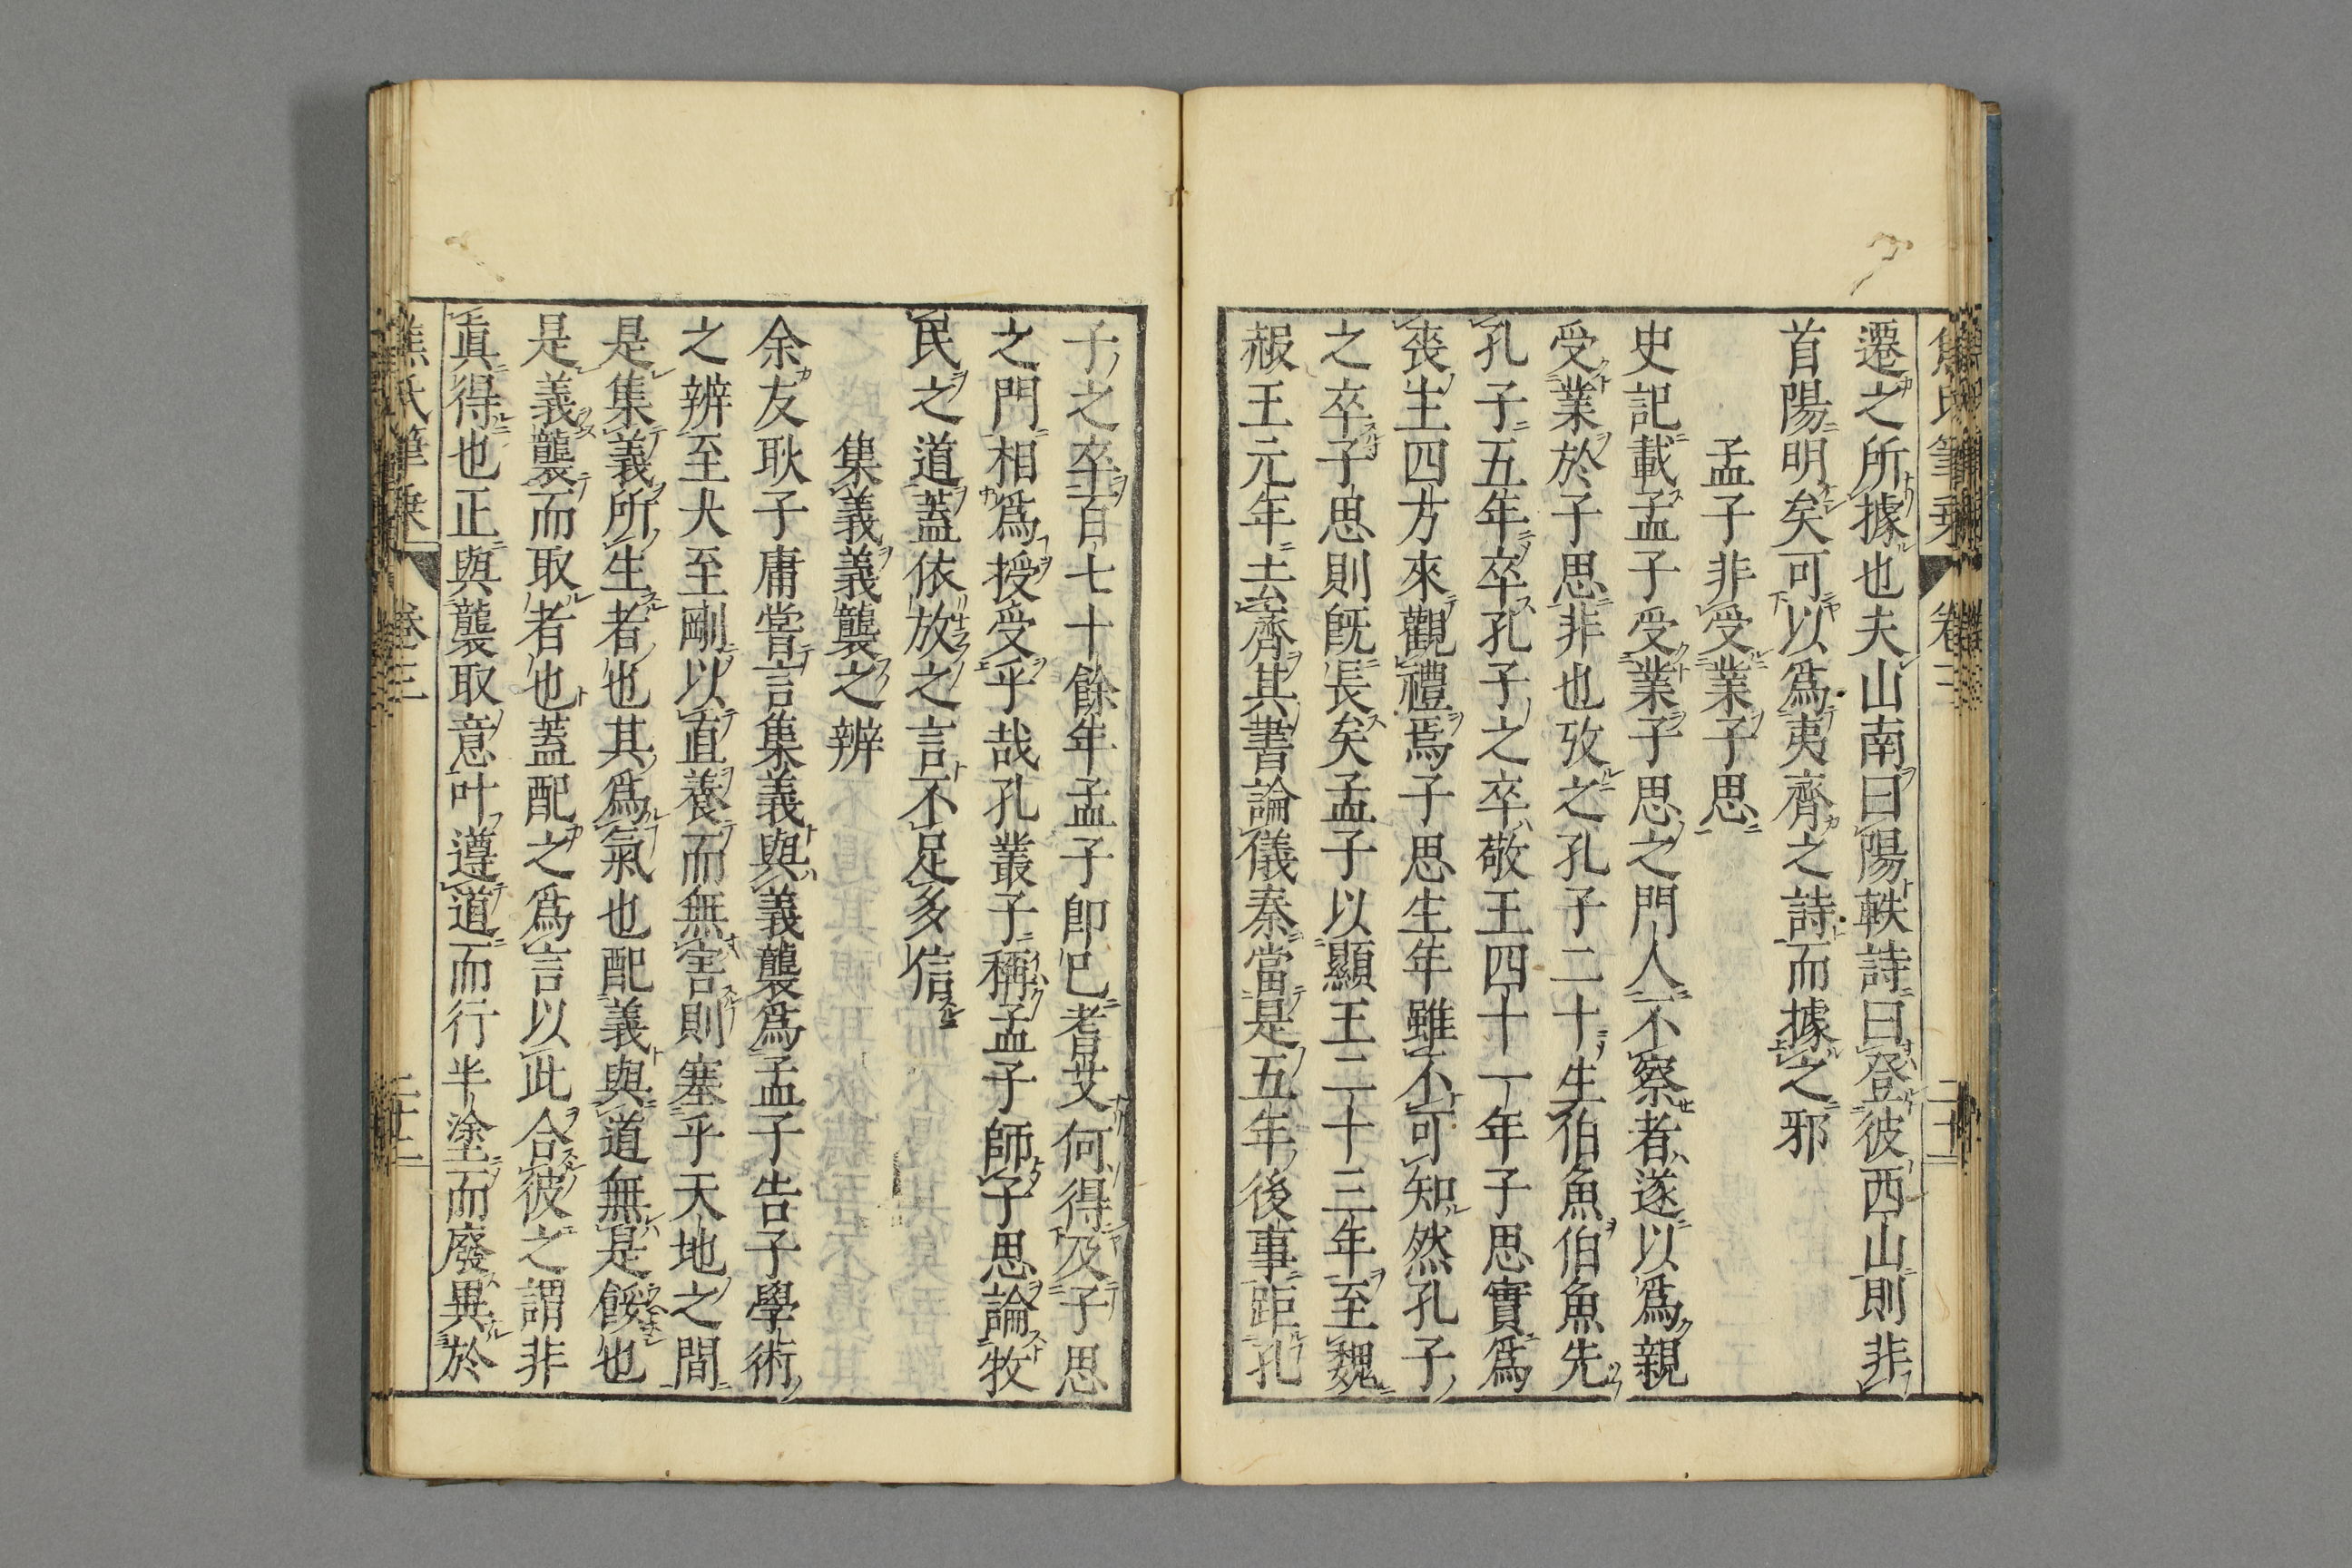 遷之所據也夫山南曰陽軼詩曰登彼西山則非
首陽明矣可以爲夷齊之詩而據之邪
孟子非受業子思
史記載孟子受業子思之門人不察者遂以爲親
受業於子思非也攷之孔子二十生伯魚伯魚先
孔子五年卒孔子之卒敬王四十一年子思實爲
喪主四方來觀禮焉子思生年雖不可知然孔子
之卒子思則旣長矣孟子以顯王二十三年至魏
赧王元年去齊其書論儀秦當是五年後事距孔
子之卒百七十餘年孟子卽已耆艾何得及子思
之門相爲授受乎哉孔叢子稱孟子師子思論牧
民之道蓋依放之言不足多信
集義義襲之辨
余友耿子庸嘗言集義與義襲爲孟子告子學術
之辨至大至剛以直養而無害則塞乎天地之間
是集義所生者也其爲氣也配義與道無是餒也
是義襲而取者也蓋配之爲言以此合彼之謂非
眞得也正與襲取意叶遵道而行半塗而廢異於
焦氏筆乗 卷三